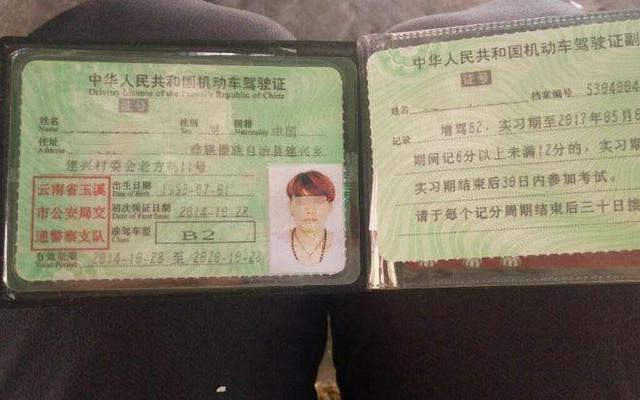 中华人民共和国机动车驾驶证
Driving License of the People's Republic of China
证号
姓名
Name
性别
Sex
男
国籍
Nationality
中国
住址
Address
彝族傣族自治县建兴乡
建兴村委会老方
11号
云南省玉溪
市公安局交
通警察支队
出生日期
Date of Birth
初次领证日期
Date of First Issue
2014-10-28
准驾车型
Class
B2
有效期限
Valid Period
2014-10-28 至 2020-10-28
中华人民共和国机动车驾驶证副
证号
姓名
档案编号
记录
增驾B2，实习期至2017年05月
期间记6分以上未满12分的，实
实习期结束后30日内参加考试。
请于每个记分周期结束后三十日接